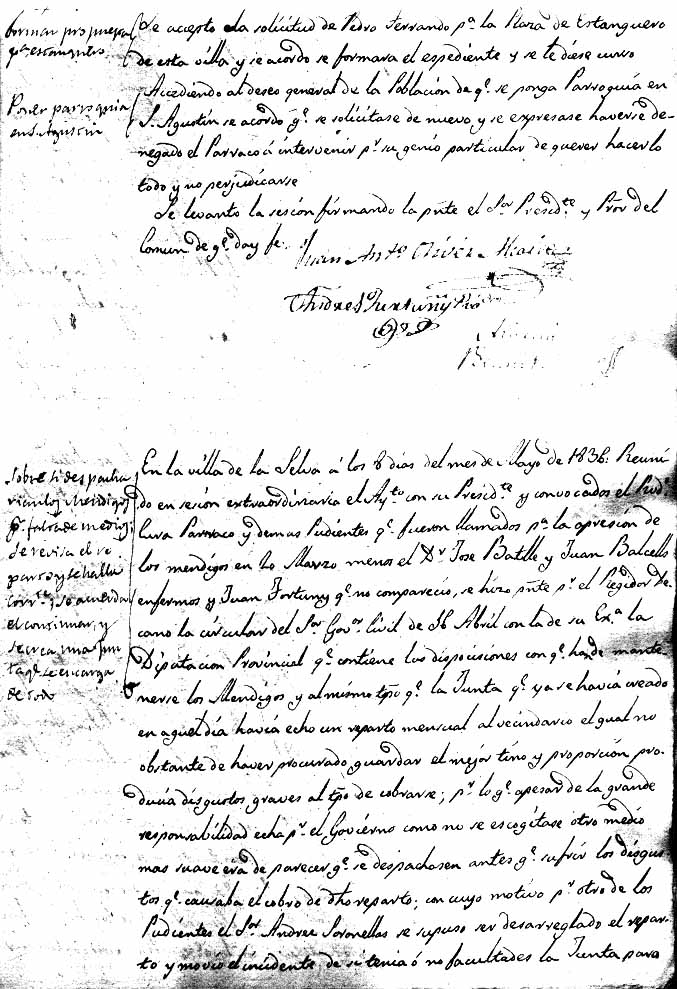 formar propuesta
pª estanquero
Se acepto la solicitud de Pedro Ferrando pª la Plaza de Estanquero
de esta villa y se acordo se formara el espediente y se le diese curso
Poner parroquia
en S. Agustin
Accediendo al deseo general de la Poblacion de qᵉ se ponga Parroquia en
S. Agustin se acordo qᵉ se solicitase de nuevo y se expresase haverse de-
negado el Parraco á intervenir pʳ su genio particular de querer hacerlo
todo y no perjudicarse
Se levanto la sesion firmando la pnte el Sor Presidᵗᵉ y Pror del
Comun de qᵉ doy fe.
Juan Antº Oliver Alcalde
Andres Fortuny
Sobre si despacha
rian los Mendigos
pʳ falta de medios
se revisa el re
parto y se halla
corrᵗᵉ y se acuerda
el continuar, y
se crea una Jun
ta qᵉ se encarga
de todo
En la villa de la Selva á los 8 dias del mes de Mayo de 1836: Reuni
do en sesion extraordinaria el Aytº con su Presidᵗᵉ y convocados el Rvd
Cura Parraco y demas Pudientes qᵉ fueron llamados pª la apresión de
los mendigos en 20 Marzo menos el Dʳ Jose Batlle y Juan Balcells
enfermos y Juan Fortuny qᵉ no comparecio, se hizo pnte pʳ el Regidor De-
cano la circular del Sor Govor Civil de 16 Abril con la de su Exª la
Diputacion Provincial qᵉ contiene las disposisiones con qᵉ han de mante-
nerse los Mendigos y al mismo tpo qᵉ la Junta qᵉ ya se havia creado
en aquel dia havia echo un reparto mensual al vecindario el qual no
obstante de haver procurado guardar el mejor tino y proporción pro-
ducia disgustos graves al tpo de cobrarse; pʳ lo qᵉ apesar de la grande
responsabilidad echa pʳ el Govierno como no se escogitase otro medio
mas suave era de parecer qᵉ se despachasen antes qᵉ sufrir los disgus
tos qᵉ causaba el cobro de dho reparto; con cuyo motivo pʳ otro de los
Pudientes el Sor Andreu Soronellas se supuso ser desarreglado el repar-
to y movio el incidente de si tenia ó no facultades la Junta para